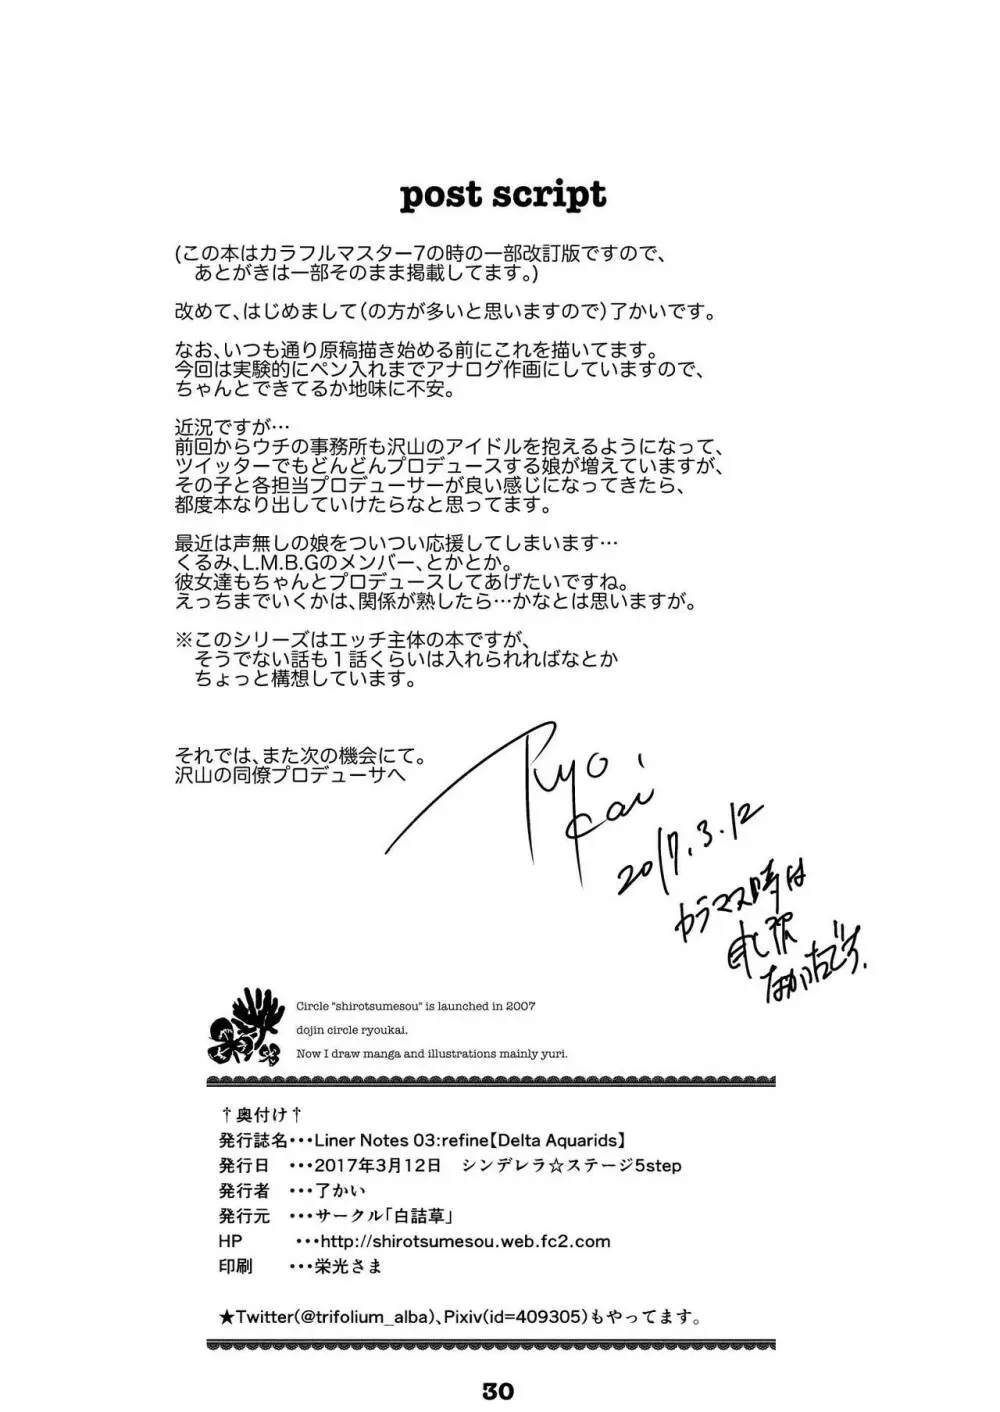 post script
(この本はカラフルマスター7の時の一部改訂版ですので、
あとがきは一部そのまま掲載してます。)
改めて、はじめまして(の方が多いと思いますので)了かいです。
なお、いつも通り原稿描き始める前にこれを描いてます。
今回は実験的にペン入れまでアナログ作画にしていますので、
ちゃんとできてるか地味に不安。
近況ですが…
前回からウチの事務所も沢山のアイドルを抱えるようになって、
ツイッターでもどんどんプロデュースする娘が増えていますが、
その子と各担当プロデューサーが良い感じになってきたら、
都度本なり出していけたらなと思ってます。
最近は声無しの娘をついつい応援してしまいます…
くるみ、L.M.B.Gのメンバー、とかとか。
彼女達もちゃんとプロデュースしてあげたいですね。
えっちまでいくかは、関係が熟したら…かなとは思いますが。
※このシリーズはエッチ主体の本ですが、
そうでない話も1話くらいは入れられればなとか
ちょっと構想しています。
それでは、また次の機会にて。
沢山の同僚プロデューサへ
Ryo.
Kai
2017.3.12
カラマス時は
なかったです.
Circle "shirotsumesou" is launched in 2007
dojin circle ryoukai.
Now I draw manga and illustrations mainly yuri.
†奥付け†
発行誌名・・・Liner Notes 03:refine【Delta Aquarids】
発行日 ・・・2017年3月12日 シンデレラ☆ステージ5step
発行者 ・・・了かい
発行元 ・・・サークル「白詰草」
HP ・・・http://shirotsumesou.web.fc2.com
印刷 ・・・栄光さま
★Twitter(@trifolium_alba)、Pixiv(id=409305)もやってます。
30